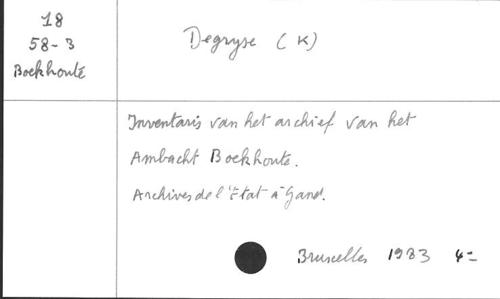 18
58-3
Boekhoute
Degryse (K)
Inventaris van het archief van het
Ambacht Boekhoute.
Archives de l'Etat à Gand.
Bruxelles 1983 4=